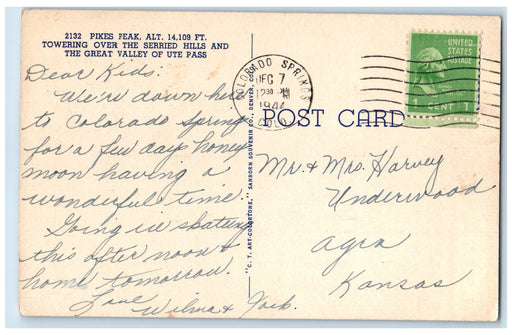 2132 PIKES PEAK, ALT. 14,109 FT.
TOWERING OVER THE SERRIED HILLS AND
THE GREAT VALLEY OF UTE PASS
Dear Kids:
We're down here
to Colorado Springs
for a few days honey
moon having a
wonderful time.
Going ice skating
this after noon &
home tomorrow.
Love
Wilma & Jack.
"C. T. ART-COLORTONE," SANBORN SOUVENIR CO., DENVER, COLO.
COLORADO SPRINGS
DEC 7
12 30 PM
COLO.
UNITED
STATES
POSTAGE
1 CENT 1
POST CARD
Mr & Mrs. Harvey
Underwood
Agra
Kansas